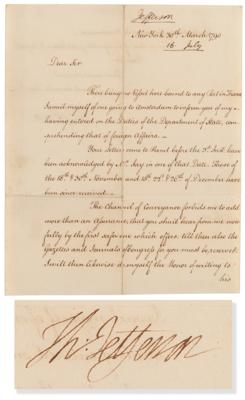 Jefferson
New York 30th March 1790
16 July
Dear Sir
There being no Vessel here bound to any Port in France
I avail myself of one going to Amsterdam to inform you of my
having entered on the Duties of the Department of State, com
prehending that of foreign Affairs.
Your Letters come to Hand before the 3d. Inst. have
been acknowledged by Mr. Jay in one of that Date. Those of
the 18th & 30th. November and 26th of December have
been since received.
The Channel of Conveyance forbids me to add
more than an Assurance, that you shall hear from me more
fully by the first safe one which offers: till then also the
Gazettes and Journals of Congress for you must be reserved.
I will then likewise do myself the Honor of writing to
his
Th: Jefferson